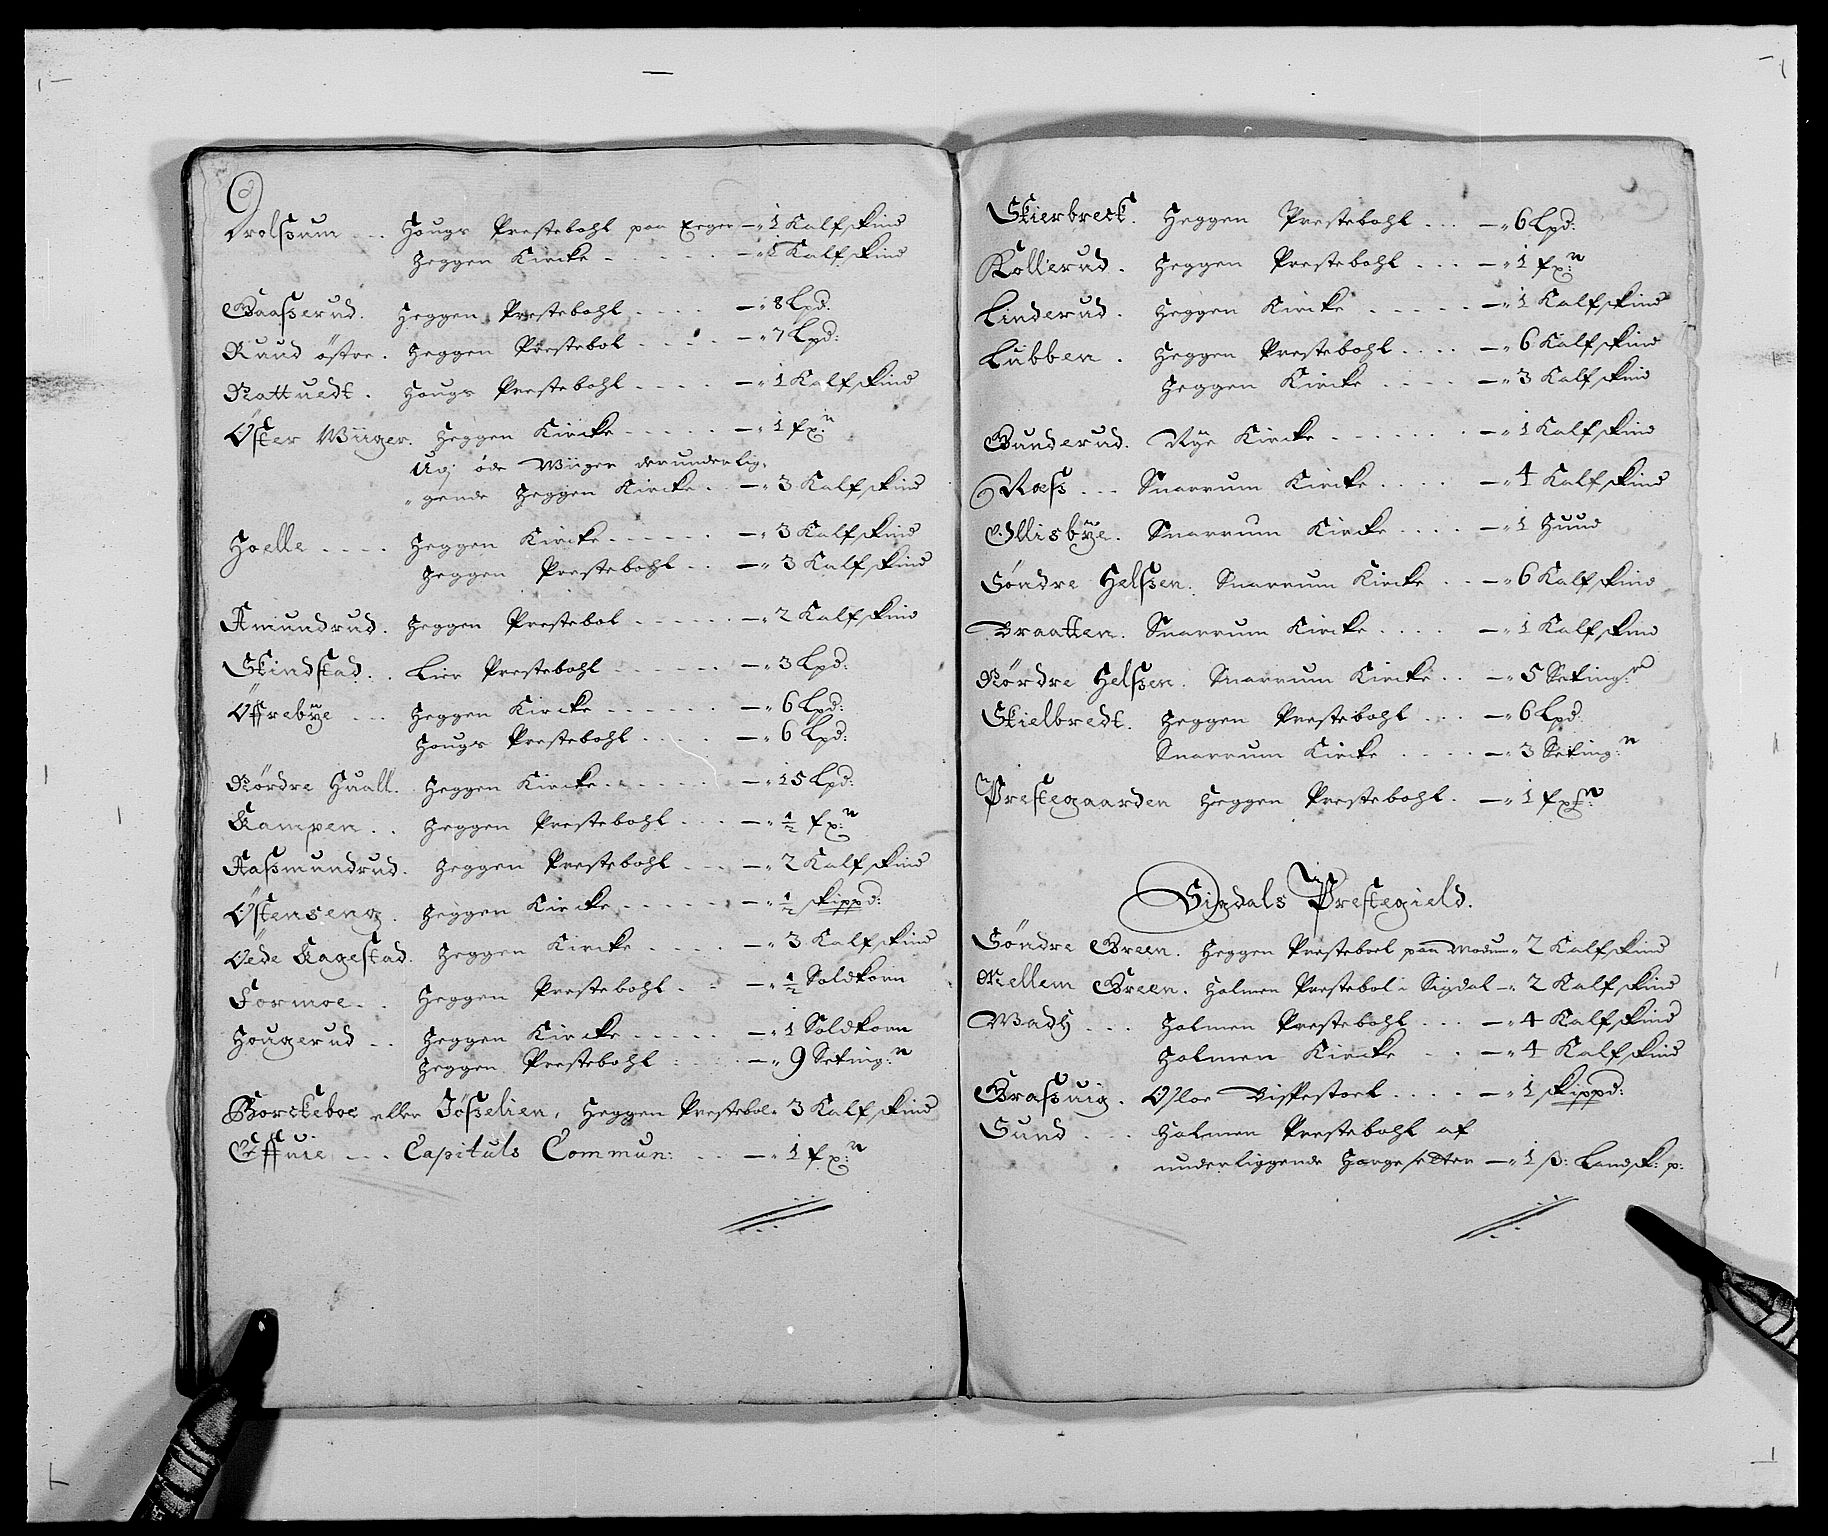 Drolssum ... Hougs Prestebohl paa Eeger — 1 Kalfskind
Heggen Kircke ..... — 1 Kalfskind
Baasserud. Heggen Prestebohl .... — 8 Lpd:
Ruud östre. Heggen Prestebol .... — 7 Lpd:
Nattuedt. Hougs Prestebohl .... — 1 Kalfskind
Öster Wiiger. Heggen Kircke ..... — 1 fx:n
Udj öde Wiiger derunderlig-
gende Heggen Kircke . — 3 Kalfskind
Hoelle .... Heggen Kircke ...... — 3 Kalfskind
Heggen Prestebohl .. — 3 Kalfskind
Amundrud. Heggen Prestebol ...... — 2 Kalfskind
Skindstad.. Lier Prestebohl ...... — 3 Lpd:
Öffrebÿe ... Heggen Kircke ...... — 6 Lpd:
Hougs Prestebohl .... — 6 Lpd:
Nördre Huall. Heggen Kircke...... — 15 Lpd:
Kampen .. Heggen Prestebohl ... — ½ fx:n
Aassmundrud. Heggen Prestebohl ... — 2 Kalfskind
Östenseng. Heggen Kircke ..... — ½ skippd:
Öede Kagestad. Heggen Kircke .... — 3 Kalfskind
Formoe.. Heggen Prestebohl .. — ½ Soldkorn
Hougerud .. Heggen Kircke ..... — 1 Soldkorn
Heggen Prestebohl .... — 9 Seting:n
Borckeboe eller Jösselien, Heggen Prestebol 3 Kalfskind
Effuie ... Capituls Commun: .. — 1 fx:n
Skierbreck. Heggen Prestebohl ... — 6 Lpd:
Kollerud. Heggen Prestebohl ... — 1 fx:n
Linderud. Heggen Kircke ..... — 1 Kalfskind
Lubben. Heggen Prestebohl .... — 6 Kalfskind
Heggen Kircke .... — 3 Kalfskind
Gunderud. Nye Kircke ...... — 1 Kalfskind
Næss ... Snarrum Kircke .... — 4 Kalfskind
Ollisbÿe. Snarrum Kircke .... — 1 Huud
Söndre Helssen. Snarrum Kircke .. — 6 Kalfskind
Braatten. Snarrum Kircke .... — 1 Kalfskind
Nördre Helssen. Snarrum Kircke .. — 5 Seting:r
Skielbredt. Heggen Prestebohl ... — 6 Lpd
Snarrum Kircke .... — 3 Seting:n
Prestegaarden Heggen Prestebohl. — 1 fx:n
Sigdals Prestegield.
Söndre Breen. Heggen Presteboel paa Modum 2 Kalfskind
Mellem Breen. Holmen Prestebol i Sigdal — 2 Kalfskind
Wadh ... Holmen Prestebohl ... — 4 Kalfskind
Holmen Kircke .. — 4 Kalfskind
Grassuig. Osloe Bispestoel .... — 1 skippd:
Sund ... Holmen Prestebohl af
underliggende Horgesetter — 1 ß: Landsk: p: